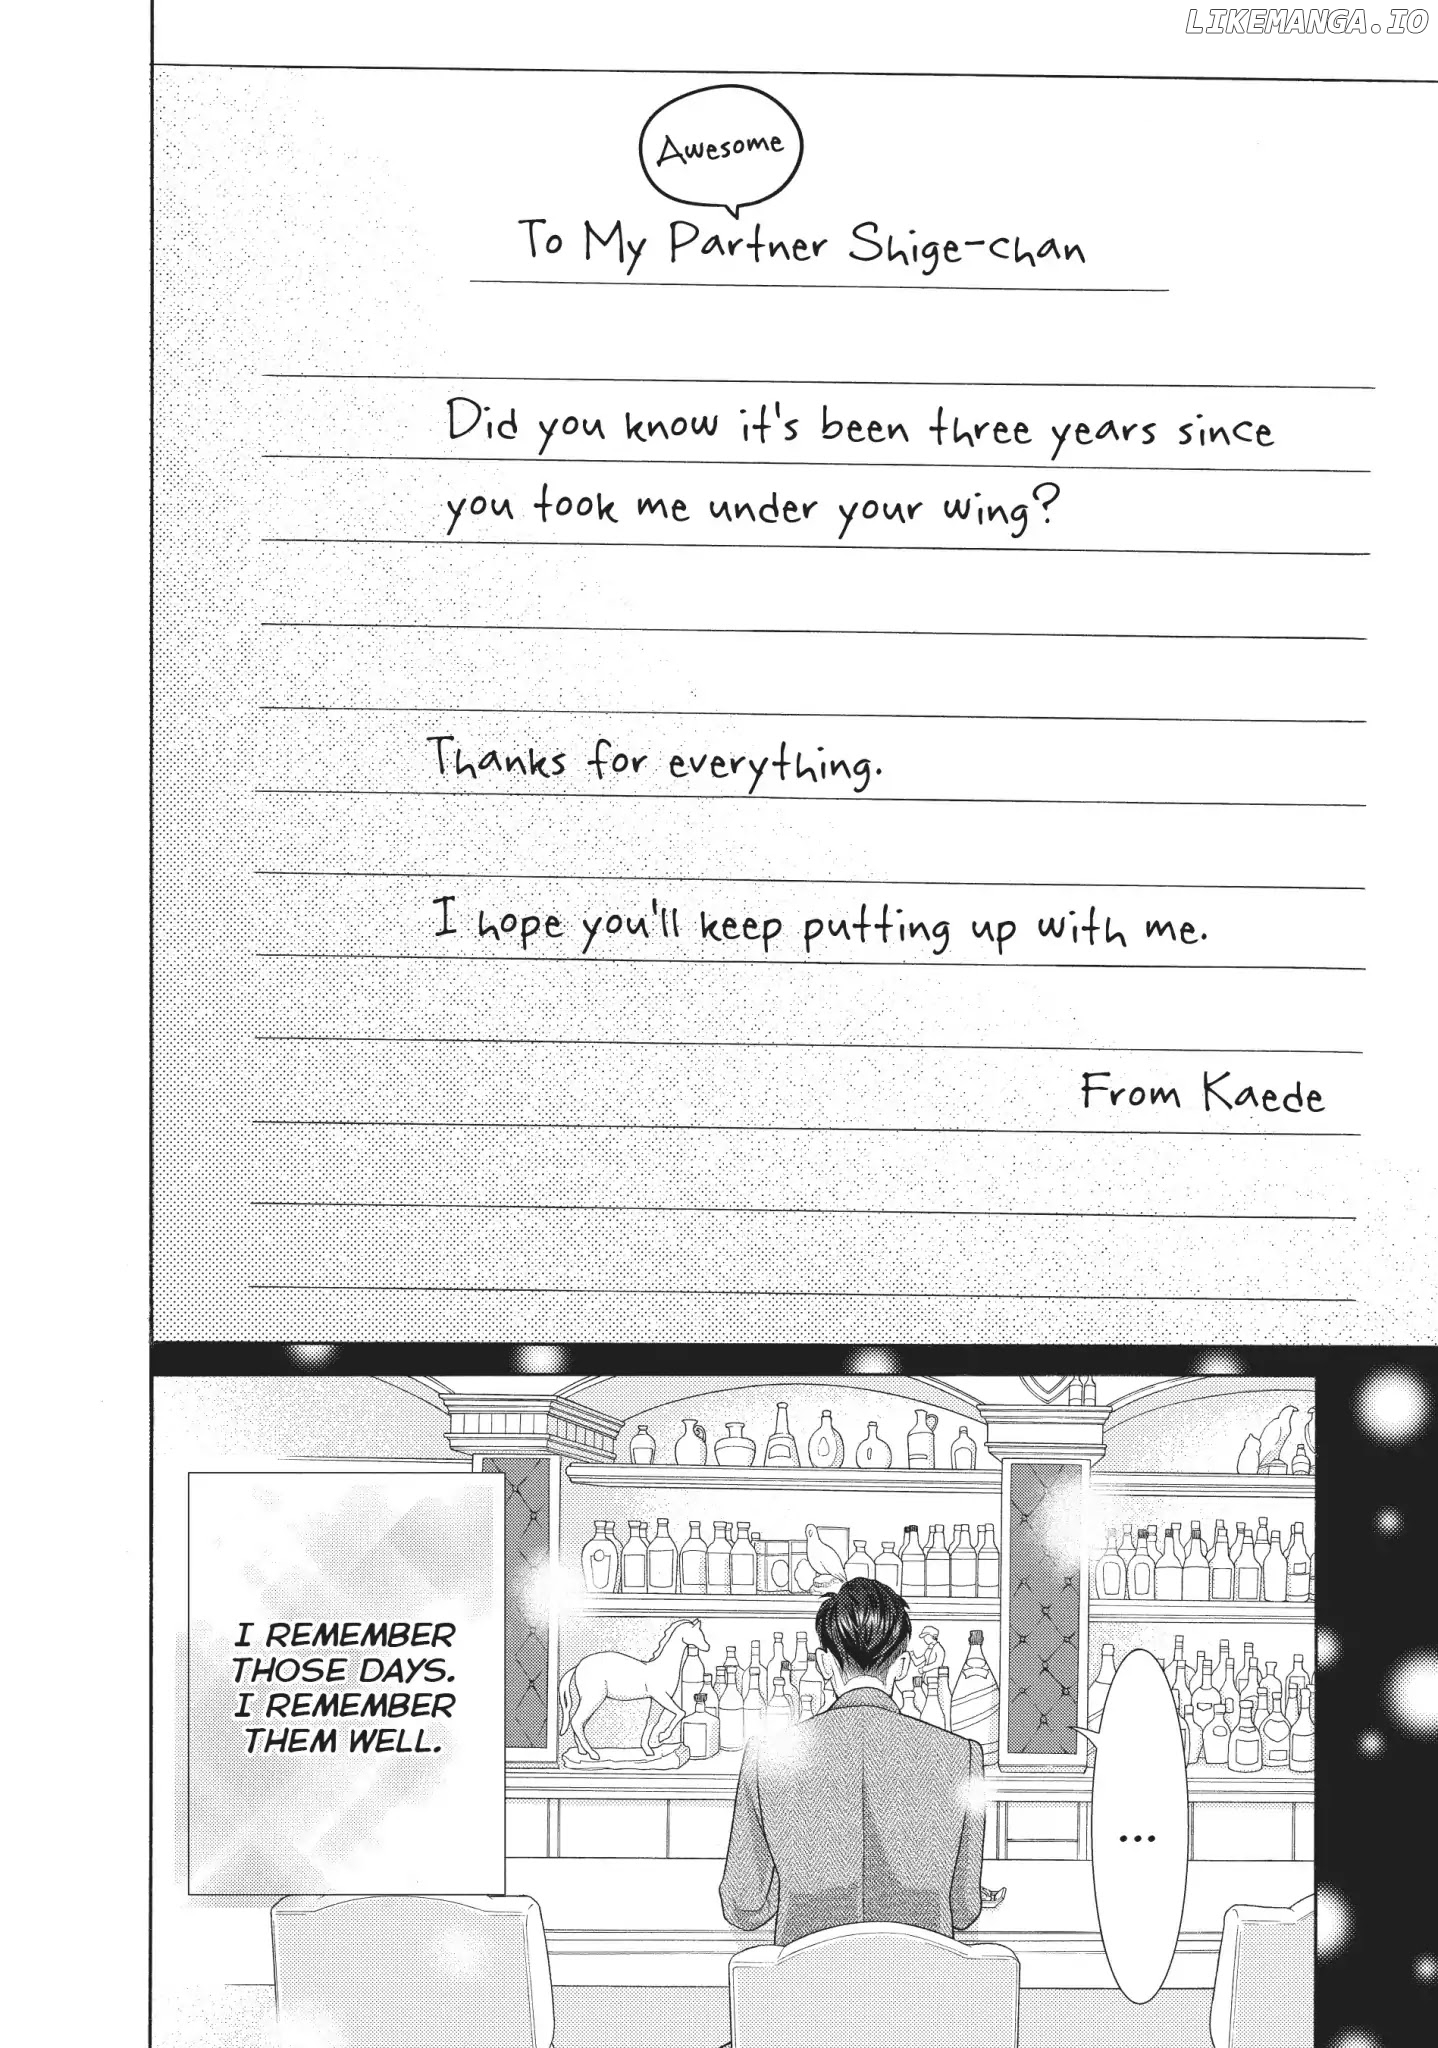 LIKEMANGA.IO
Awesome
To My Partner Shige-chan
Did you know it's been three years since
you took me under your wing?
Thanks for everything.
I hope you'll keep putting up with me.
From Kaede
I REMEMBER
THOSE DAYS.
I REMEMBER
THEM WELL.
...